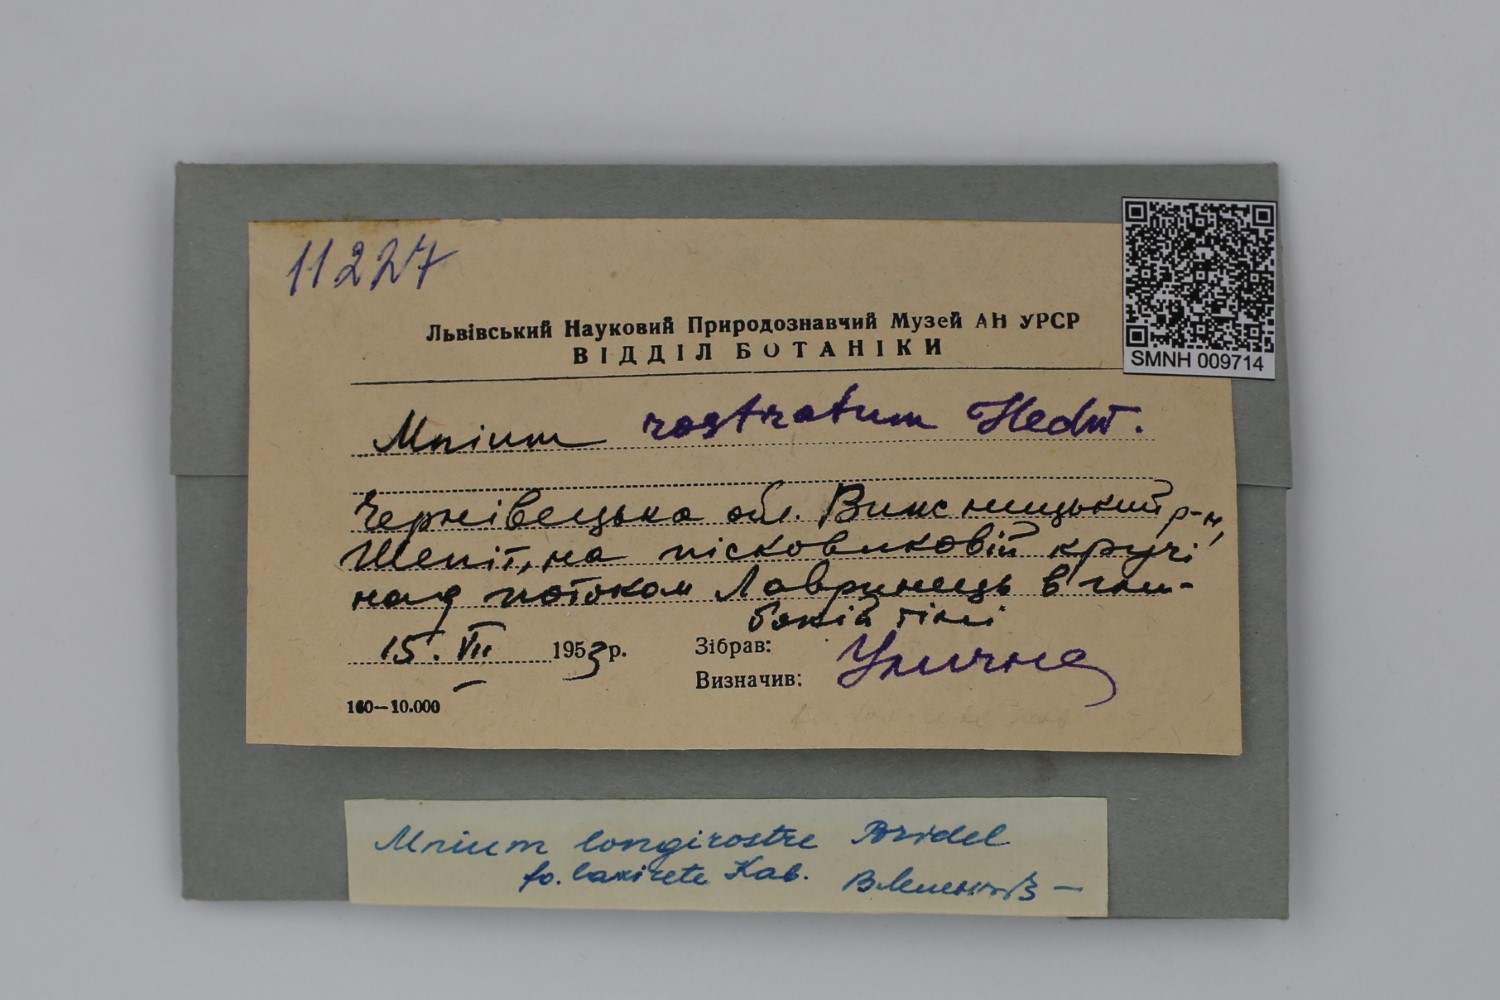 11227
SMNH 009714
Львівський Науковий Природознавчий Музей АН УРСР
ВІДДІЛ БОТАНІКИ
Mnium rostratum Hedw.
Чернівецька обл. Вижницький р-н,
Шепіт, на пісковиковій кручі
над потоком Лавринець в гли-
бокій тіні
15. VII 1953 р.
Зібрав:
Визначив: Улична
160—10.000
Mnium longirostre Bridel
fo. laxirete Kab.